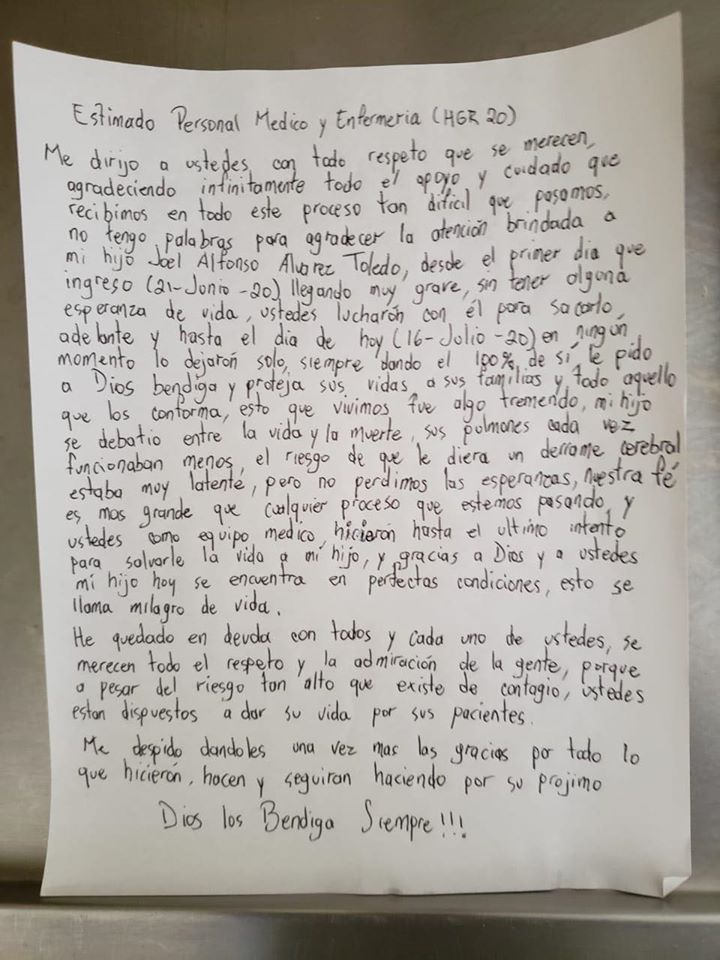 Estimado Personal Medico y Enfermeria (HGR 20)
Me dirijo a ustedes con todo respeto que se merecen,
agradeciendo infinitamente todo el apoyo y cuidado que
recibimos en todo este proceso tan dificil que pasamos,
no tengo palabras para agradecer la atención brindada a
mi hijo Joel Alfonso Alvarez Toledo, desde el primer dia que
ingreso (21-Junio-20) llegando muy grave, sin tener alguna
esperanza de vida, ustedes lucharón con él para sacarlo,
adelante y hasta el dia de hoy (16-Julio-20) en ningún
momento lo dejarón solo, siempre dando el 100% de sí, le pido
a Dios bendiga y proteja sus vidas, a sus familias y todo aquello
que los conforma, esto que vivimos fue algo tremendo, mi hijo
se debatio entre la vida y la muerte, sus pulmones cada vez
funcionaban menos, el riesgo de que le diera un derrame cerebral
estaba muy latente, pero no perdimos las esperanzas, nuestra fé
es mas grande que cualquier proceso que estemos pasando, y
ustedes como equipo medico, hicierón hasta el ultimo intento
para salvarle la vida a mi hijo, y gracias a Dios y a ustedes
mi hijo hoy se encuentra en perfectas condiciones, esto se
llama milagro de vida.
He quedado en deuda con todos y cada uno de ustedes, se
merecen todo el respeto y la admiración de la gente, porque
a pesar del riesgo tan alto que existe de contagio, ustedes
estan dispuestos a dar su vida por sus pacientes.
Me despido dandoles una vez mas las gracias por todo lo
que hicierón, hacen y seguiran haciendo por su projimo
Dios los Bendiga Siempre!!!